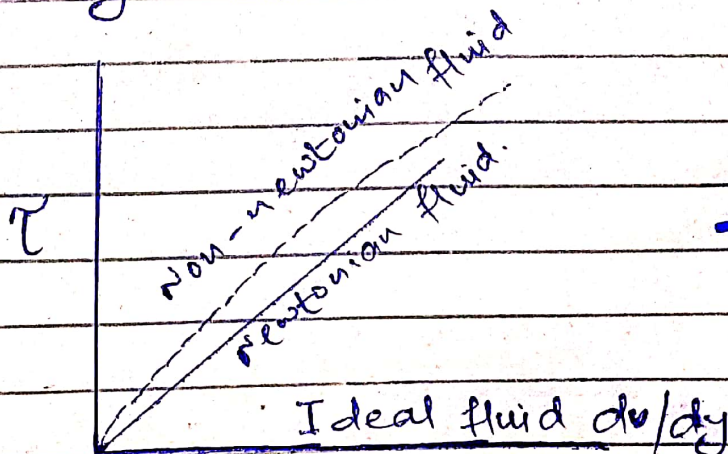 Non-newtonian fluid
τ
Newtonian fluid.
Ideal fluid dv/dy